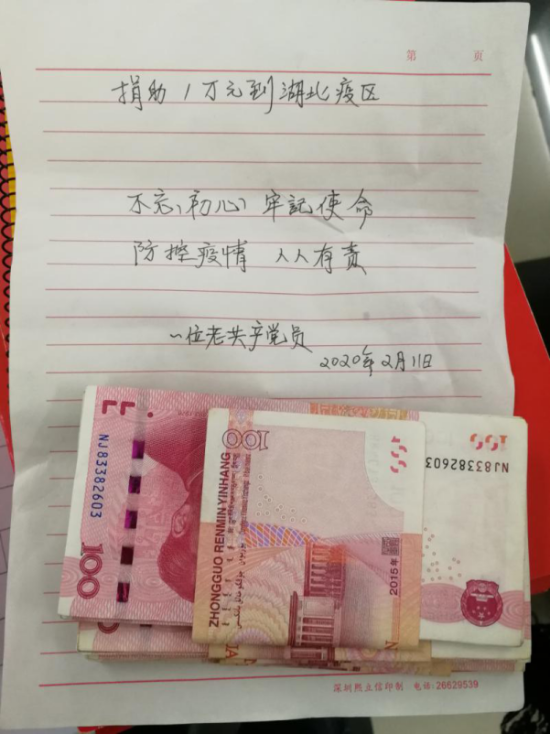 第 页
捐助1万元到湖北疫区
不忘初心牢記使命
防控疫情 人人有责
一位老共产党员
2020年2月11日
NJ83382603
100
100
ZHONGGUO RENMIN YINHANG
2015年
100
100
NJ83382603
深圳熊立信印制 电话:26629539